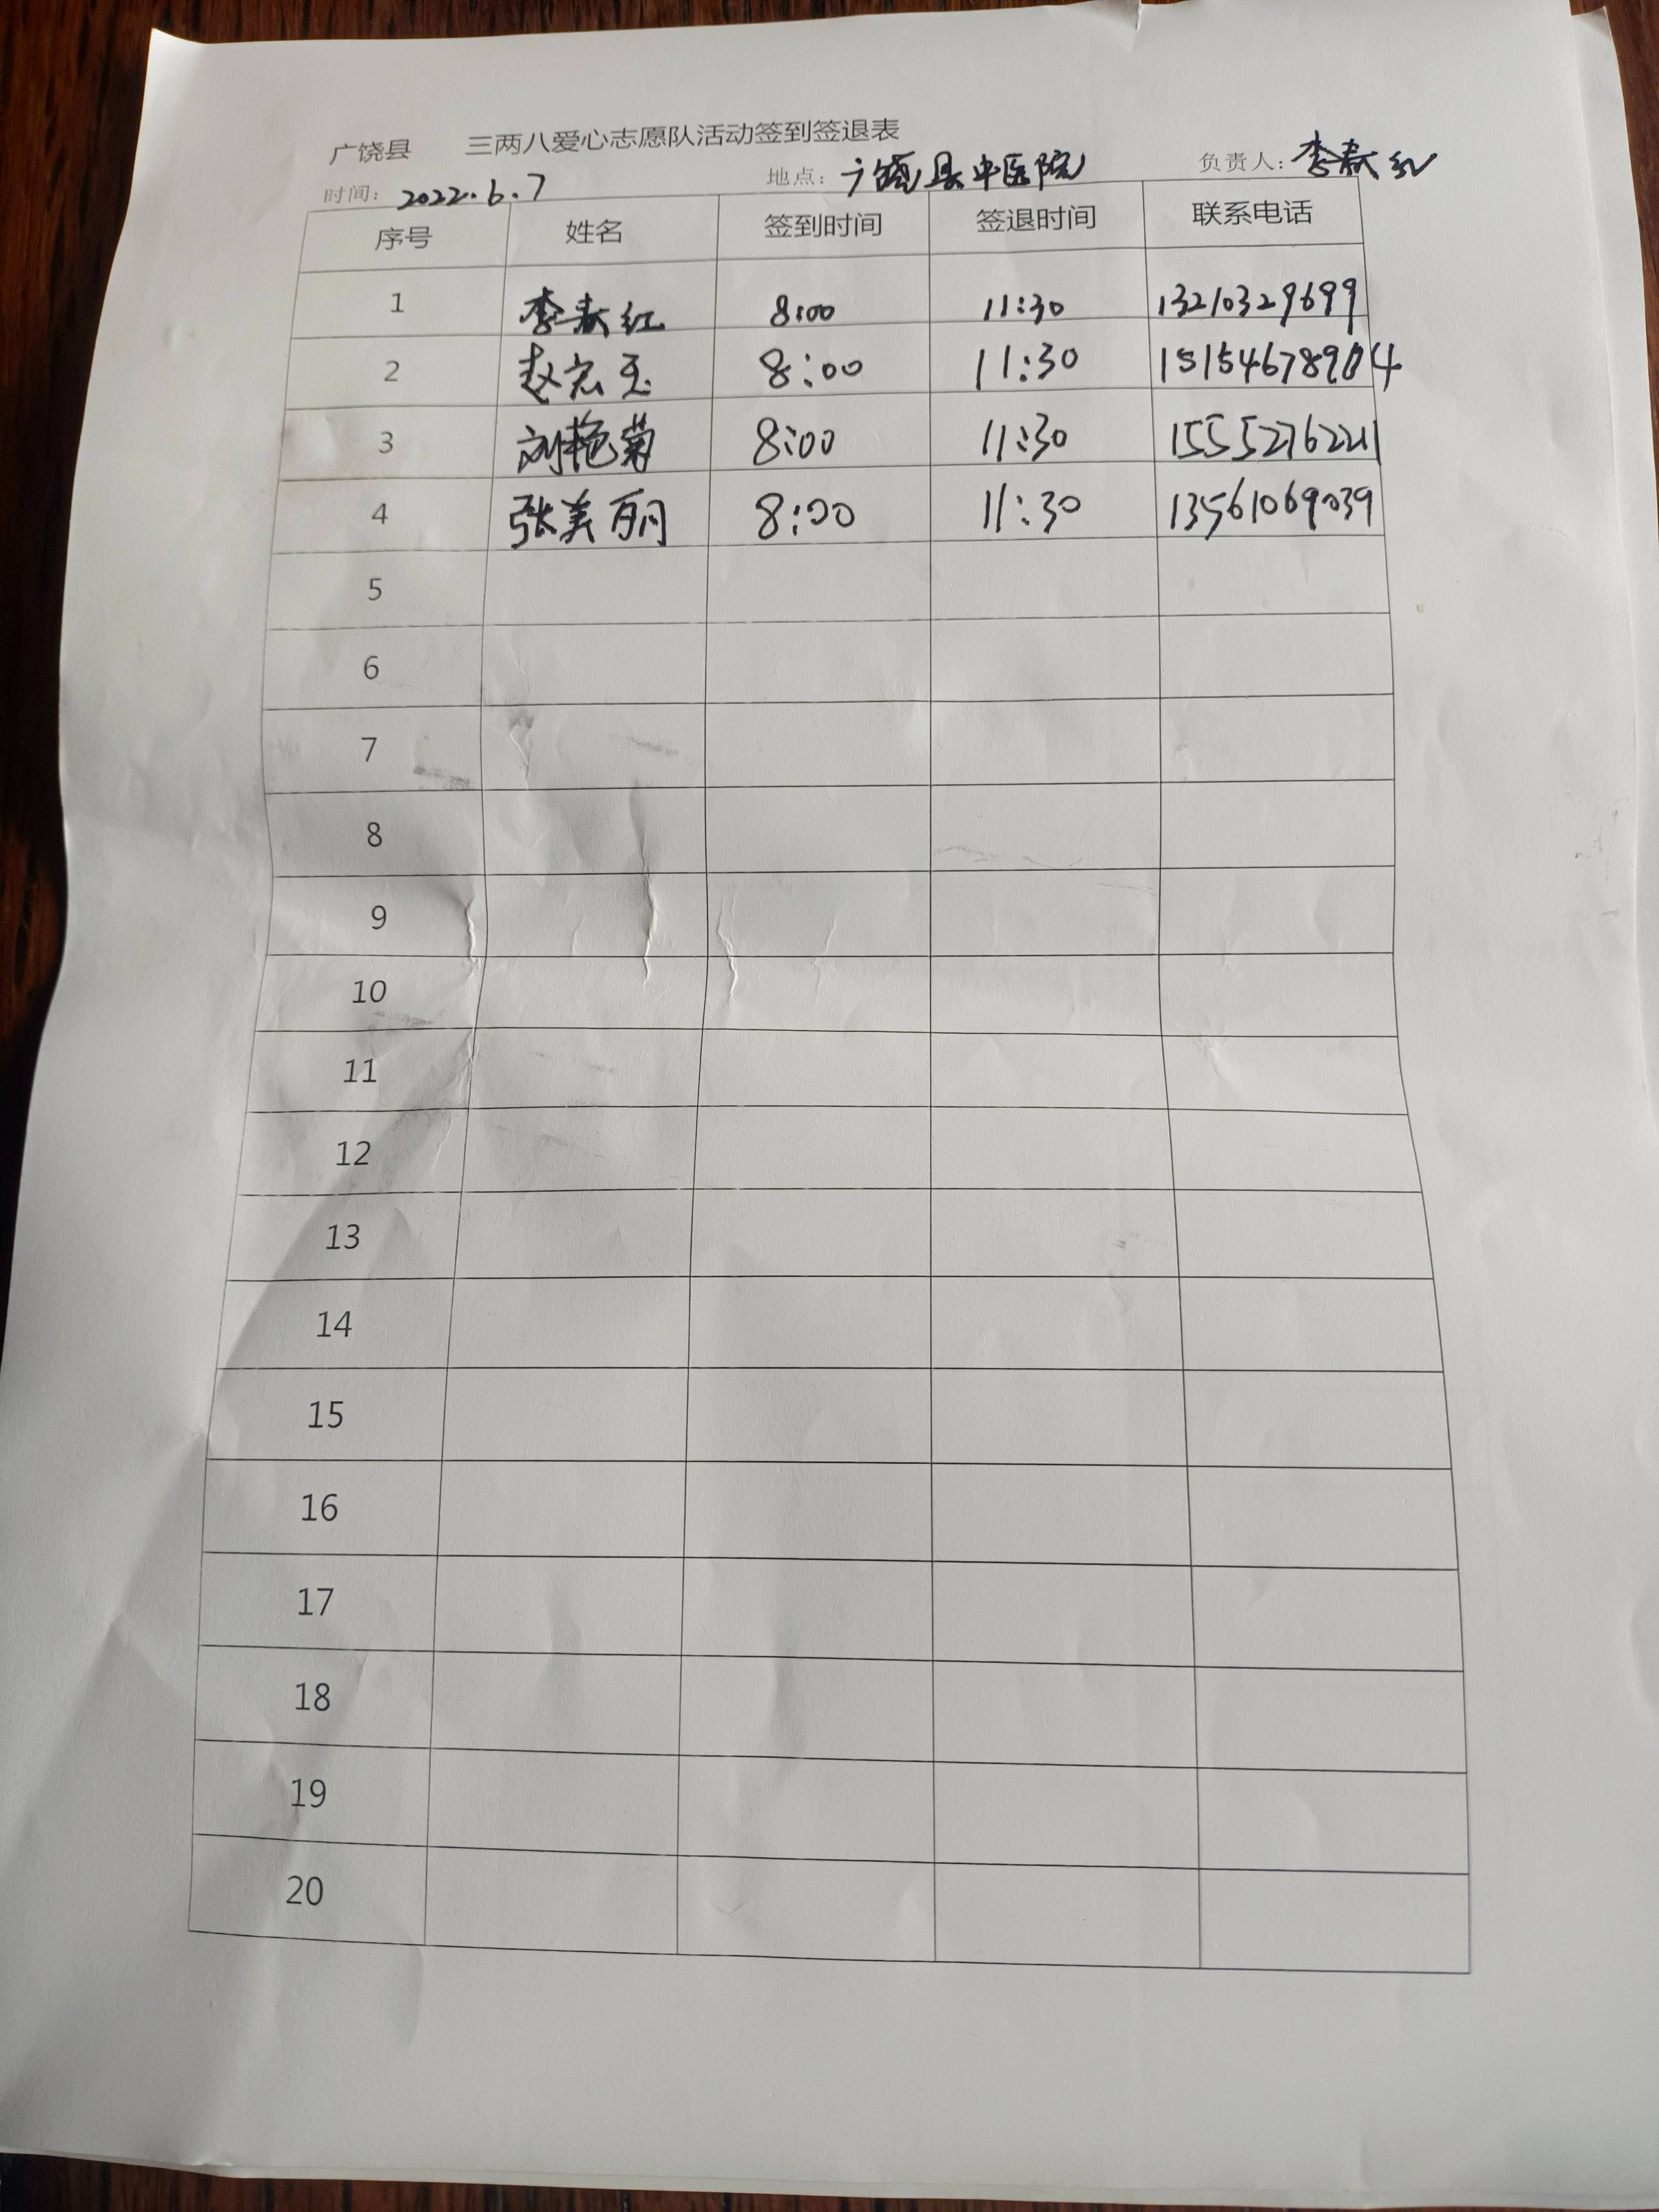 广饶县 三两八爱心志愿队活动签到签退表
时间: 2022.6.7 地点: 广饶县中医院 负责人: 李春红
序号 姓名 签到时间 签退时间 联系电话
1 李春红 8:00 11:30 13210329699
2 赵宏玉 8:00 11:30 15154678904
3 刘艳菊 8:00 11:30 15552762211
4 张美丽 8:00 11:30 13561069039
5
6
7
8
9
10
11
12
13
14
15
16
17
18
19
20